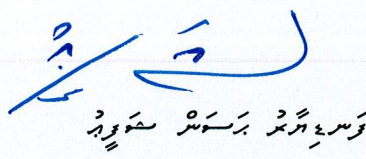 ފަނޑިޔާރު ޙަސަން ޝަފީޢު